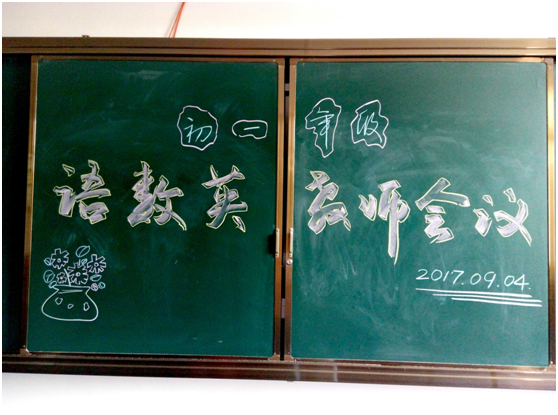 初一年级
语数英教师会议
2017.09.04.